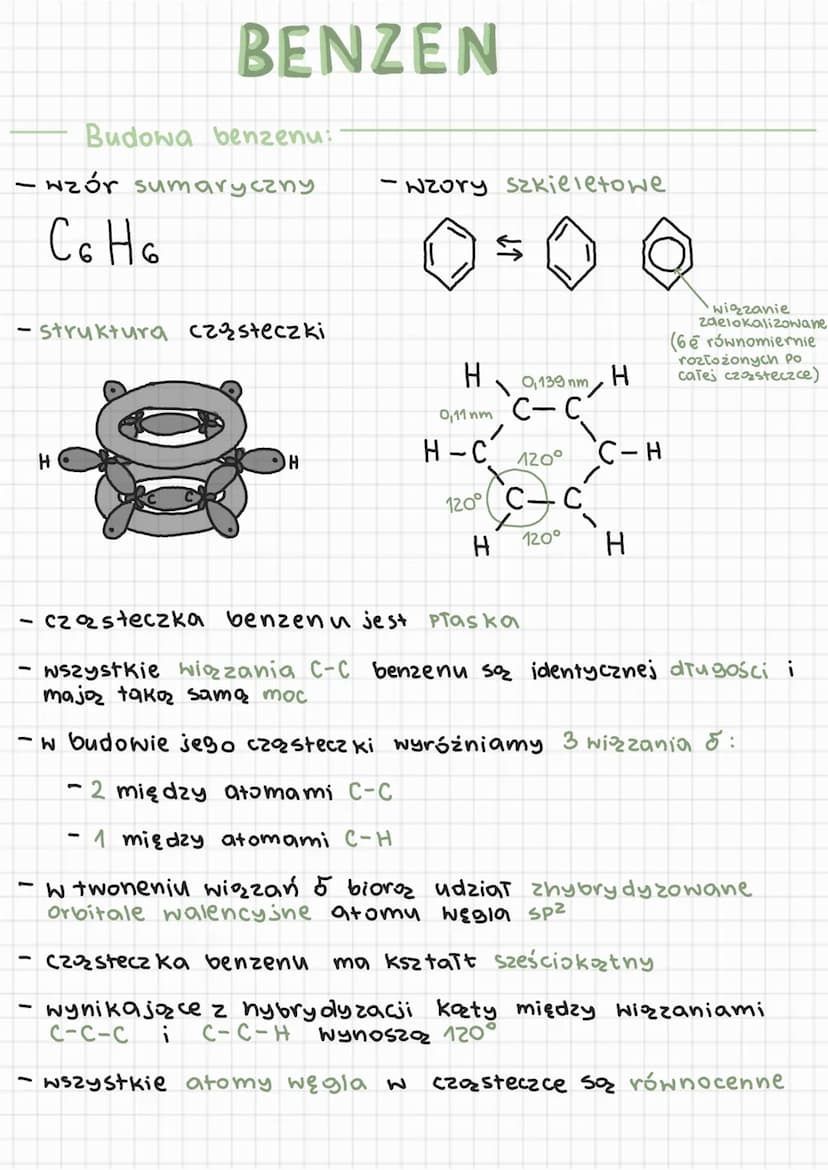 BENZEN
Budowa benzenu:
- wzór sumaryczny
C6H6
- wzory szkieletowe
⇆
wiązanie
zdelokalizowane
(6ē równomiernie
rozłożonych po
całej cząsteczce)
- struktura cząsteczki
H
H
C
C
H
0,139 nm
H
0,11 nm
C-C
H-C
120°
C-H
120°
C-C
H
120°
H
- cząsteczka benzenu jest płaska
- wszystkie wiązania C-C benzenu są identycznej długości i
mają taką samą moc
- w budowie jego cząsteczki wyróżniamy 3 wiązania δ:
- 2 między atomami C-C
- 1 między atomami C-H
- w tworzeniu wiązań δ biorą udział zhybrydyzowane
orbitale walencyjne atomu węgla sp²
- cząsteczka benzenu ma kształt sześciokątny
- wynikające z hybrydyzacji kąty między wiązaniami
C-C-C i C-C-H wynoszą 120°
- wszystkie atomy węgla w cząsteczce są równocenne